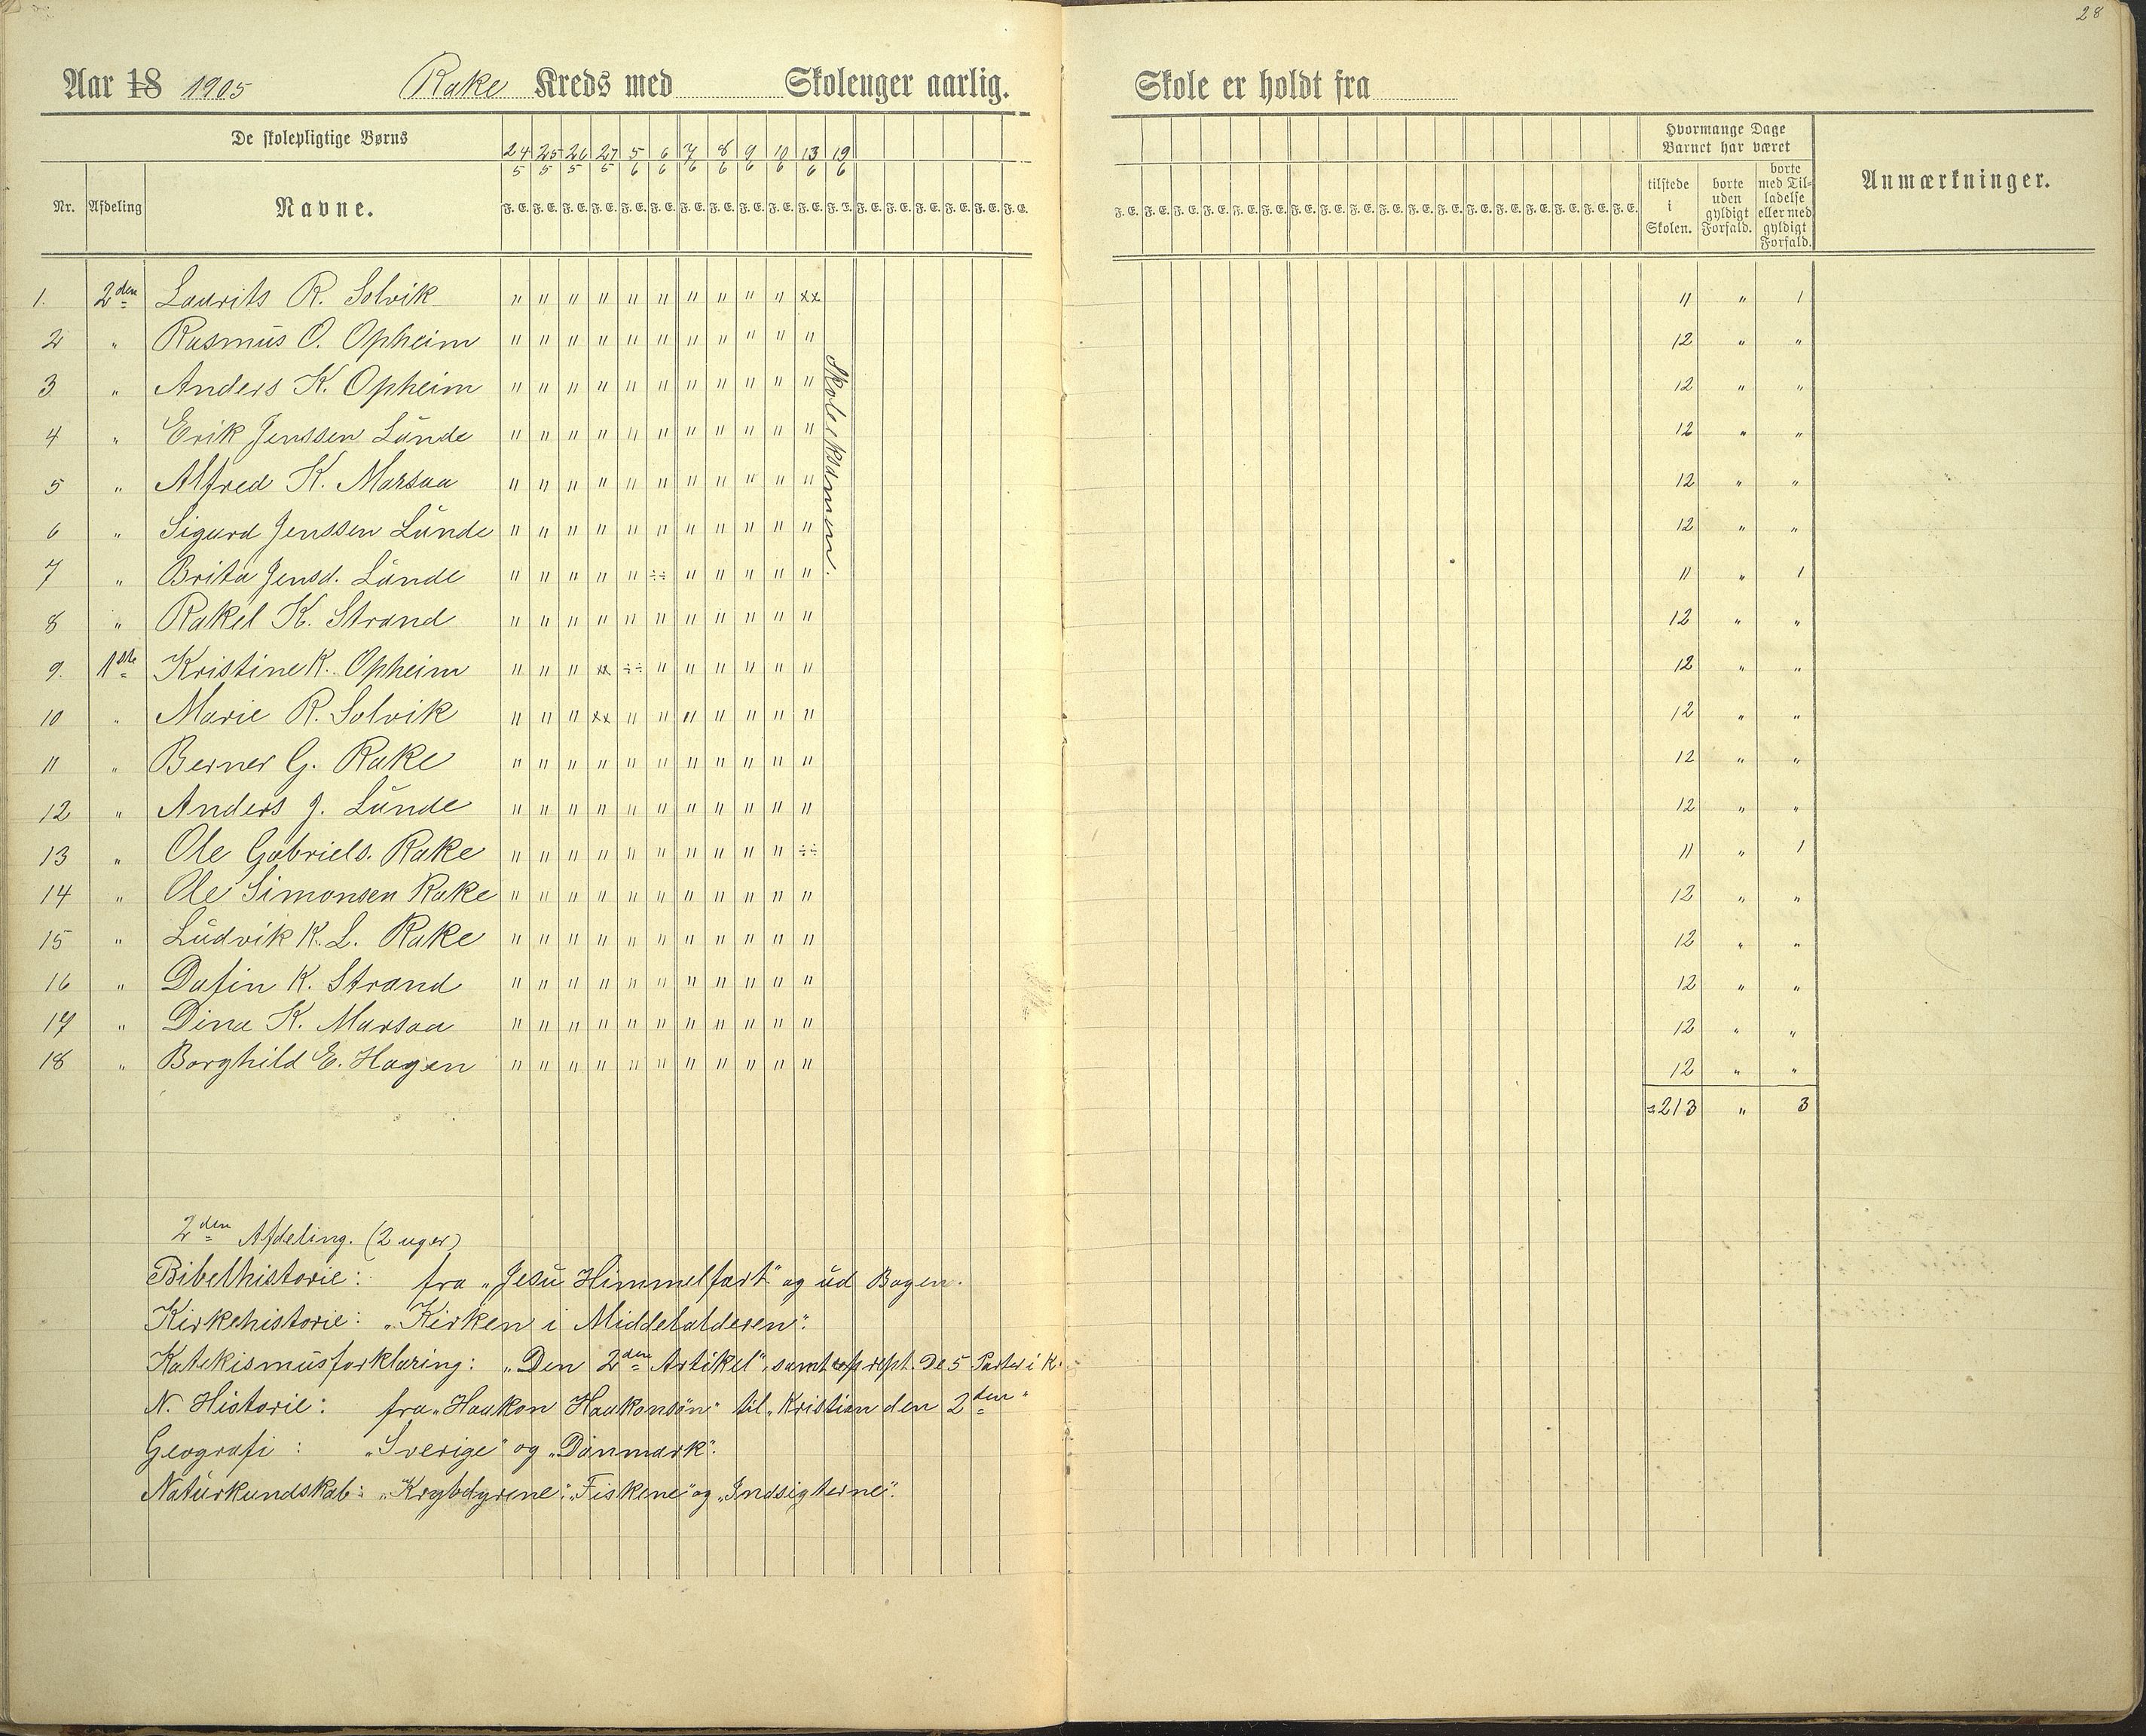 28
Aar 18 1905 Rake Kreds med Skoleuger aarlig. Skole er holdt fra
De skolepligtige Børns
Nr. Afdeling Navne.
24/5 25/5 26/5 27/5 5/6 6/6 7/6 8/6 9/6 10/6 13/6 19/6
F. E. F. E. F. E. F. E. F. E. F. E. F. E. F. E. F. E. F. E. F. E. F. E. F. E. F. E. F. E. F. E. F. E. F. E.
F. E. F. E. F. E. F. E. F. E. F. E. F. E. F. E. F. E. F. E. F. E. F. E. F. E. F. E. F. E. F. E. F. E. F. E.
Hvormange Dage
Barnet har været
tilstede
i
Skolen.
borte
uden
gyldigt
Forfald.
borte
med Til-
ladelse
eller med
gyldigt
Forfald.
Anmærkninger.
1. 2den Laurits R. Solvik " " " " " " " " " " xx 11 " 1
2 " Rasmus O. Opheim " " " " " " " " " " " 12 " "
3 " Anders K. Opheim " " " " " " " " " " " 12 " "
4 " Erik Jenssen Lunde " " " " " " " " " " " 12 " "
5 " Alfred K. Marsaa " " " " " " " " " " " 12 " "
6 " Sigurd Jenssen Lunde " " " " " " " " " " " 12 " "
7 " Brita Jensd. Lunde " " " " " ÷÷ " " " " " 11 " 1
8 " Rakel K. Strand " " " " " " " " " " " 12 " "
9. 1ste Kristine K. Opheim " " " xx ÷÷ " " " " " " 12 " "
10 " Marie R. Solvik " " " xx " " " " " " " 12 " "
11 " Berner G. Rake " " " " " " " " " " " 12 " "
12 " Anders J. Lunde " " " " " " " " " " " 12 " "
13 " Ole Gabriels. Rake " " " " " " " " " " ÷÷ 11 " 1
14 " Ole Simonsen Rake " " " " " " " " " " " 12 " "
15 " Ludvik K. L. Rake " " " " " " " " " " " 12 " "
16 " Dafin K. Strand " " " " " " " " " " " 12 " "
17 " Dina K. Marsaa " " " " " " " " " " " 12 " "
18 " Borghild E. Hagen " " " " " " " " " " " 12 " "
Skoleeksamen.
=213 " 3
2den Afdeling. (2 uger)
Bibelhistorie: fra „Jesu Himmelfart" og ud Bogen.
Kirkehistorie: „Kirken i Middelalderen".
Katekismusforklaring: „Den 2den Artikel", samt rept. De 5 Parter i K.
N. Historie: fra „Haakon Haakonsøn" til „Kristian den 2den"
Geografi: „Sverige" og „Danmark".
Naturkundskab: „Krybdyrene", „Fiskene" og „Indsigterne".